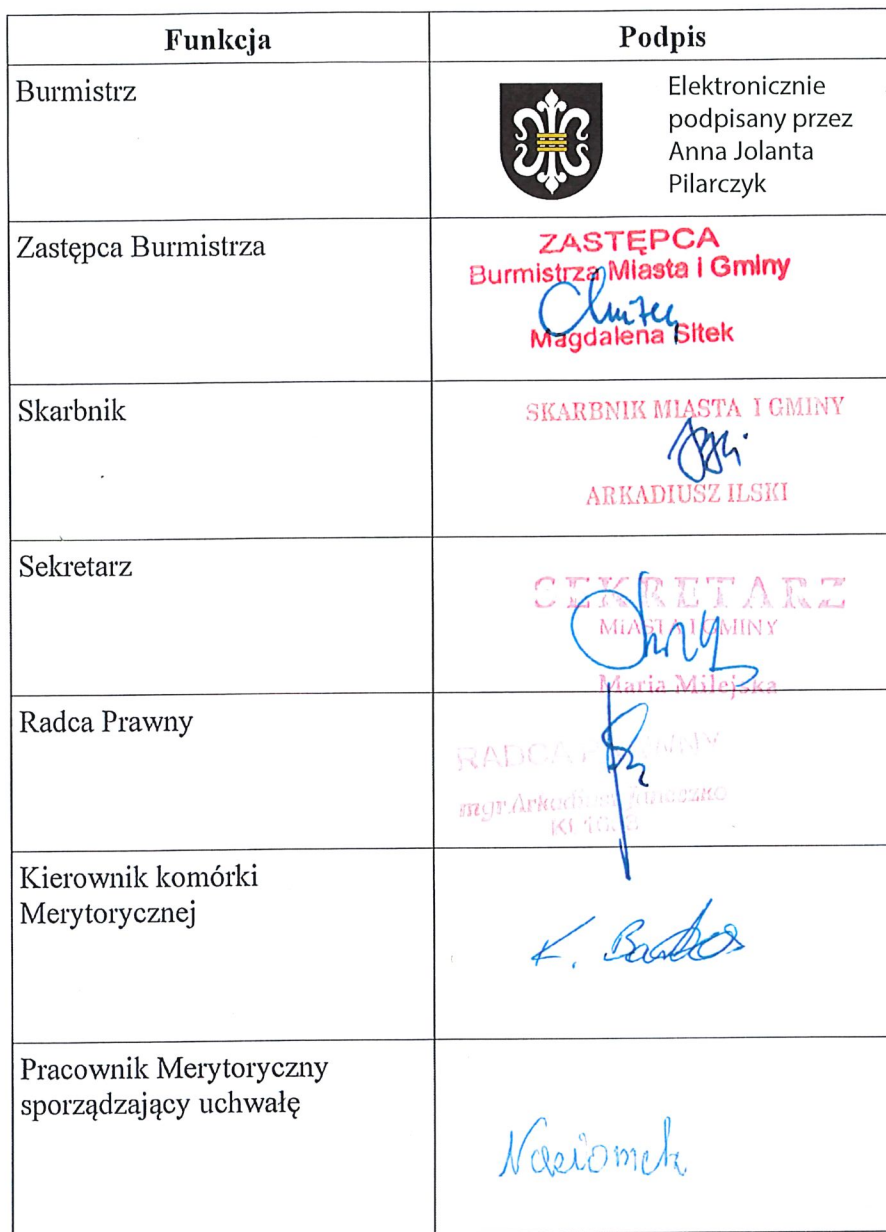 Funkcja
Podpis
Burmistrz
Elektronicznie
podpisany przez
Anna Jolanta
Pilarczyk
Zastępca Burmistrza
ZASTĘPCA
Burmistrza Miasta i Gminy
Magdalena Sitek
Skarbnik
SKARBNIK MIASTA I GMINY
ARKADIUSZ ILSKI
Sekretarz
SEKRETARZ
MIASTA I GMINY
Maria Milejska
Radca Prawny
RADCA PRAWNY
mgr Arkadiusz
Kierownik komórki
Merytorycznej
K.
Pracownik Merytoryczny
sporządzający uchwałę